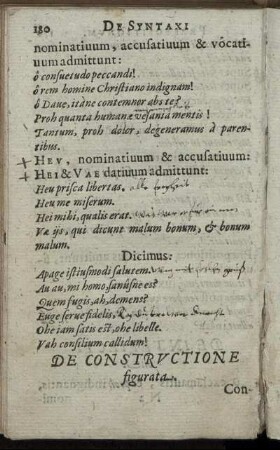 180 DE SYNTAXI
nominatiuum, accusatiuum & vòcati-
uum admittunt:
ô consuetudo peccandi!
ô rem homine Christiano indignam!
ô Daue, itáne contemnor abs te?
Proh quanta humanæ vesania mentis!
Tantum, proh dolor, degeneramus à paren-
tibus.
HEV, nominatiuum & accusatiuum:
HEI & VAE datiuum admittunt:
Heu prisca libertas,
Heu me miserum.
Hei mihi, qualis erat.
Væ ijs, qui dicunt malum bonum, & bonum
malum.
Dicimus:
Apage istiusmodi salutem.
Au au, mi homo, sanúsne es?
Quem fugis, ah, demens?
Euge serue fidelis,
Ohe iam satis est, ohe libelle.
Vah consilium callidum!
DE CONSTRVCTIONE
figurata.
Con-